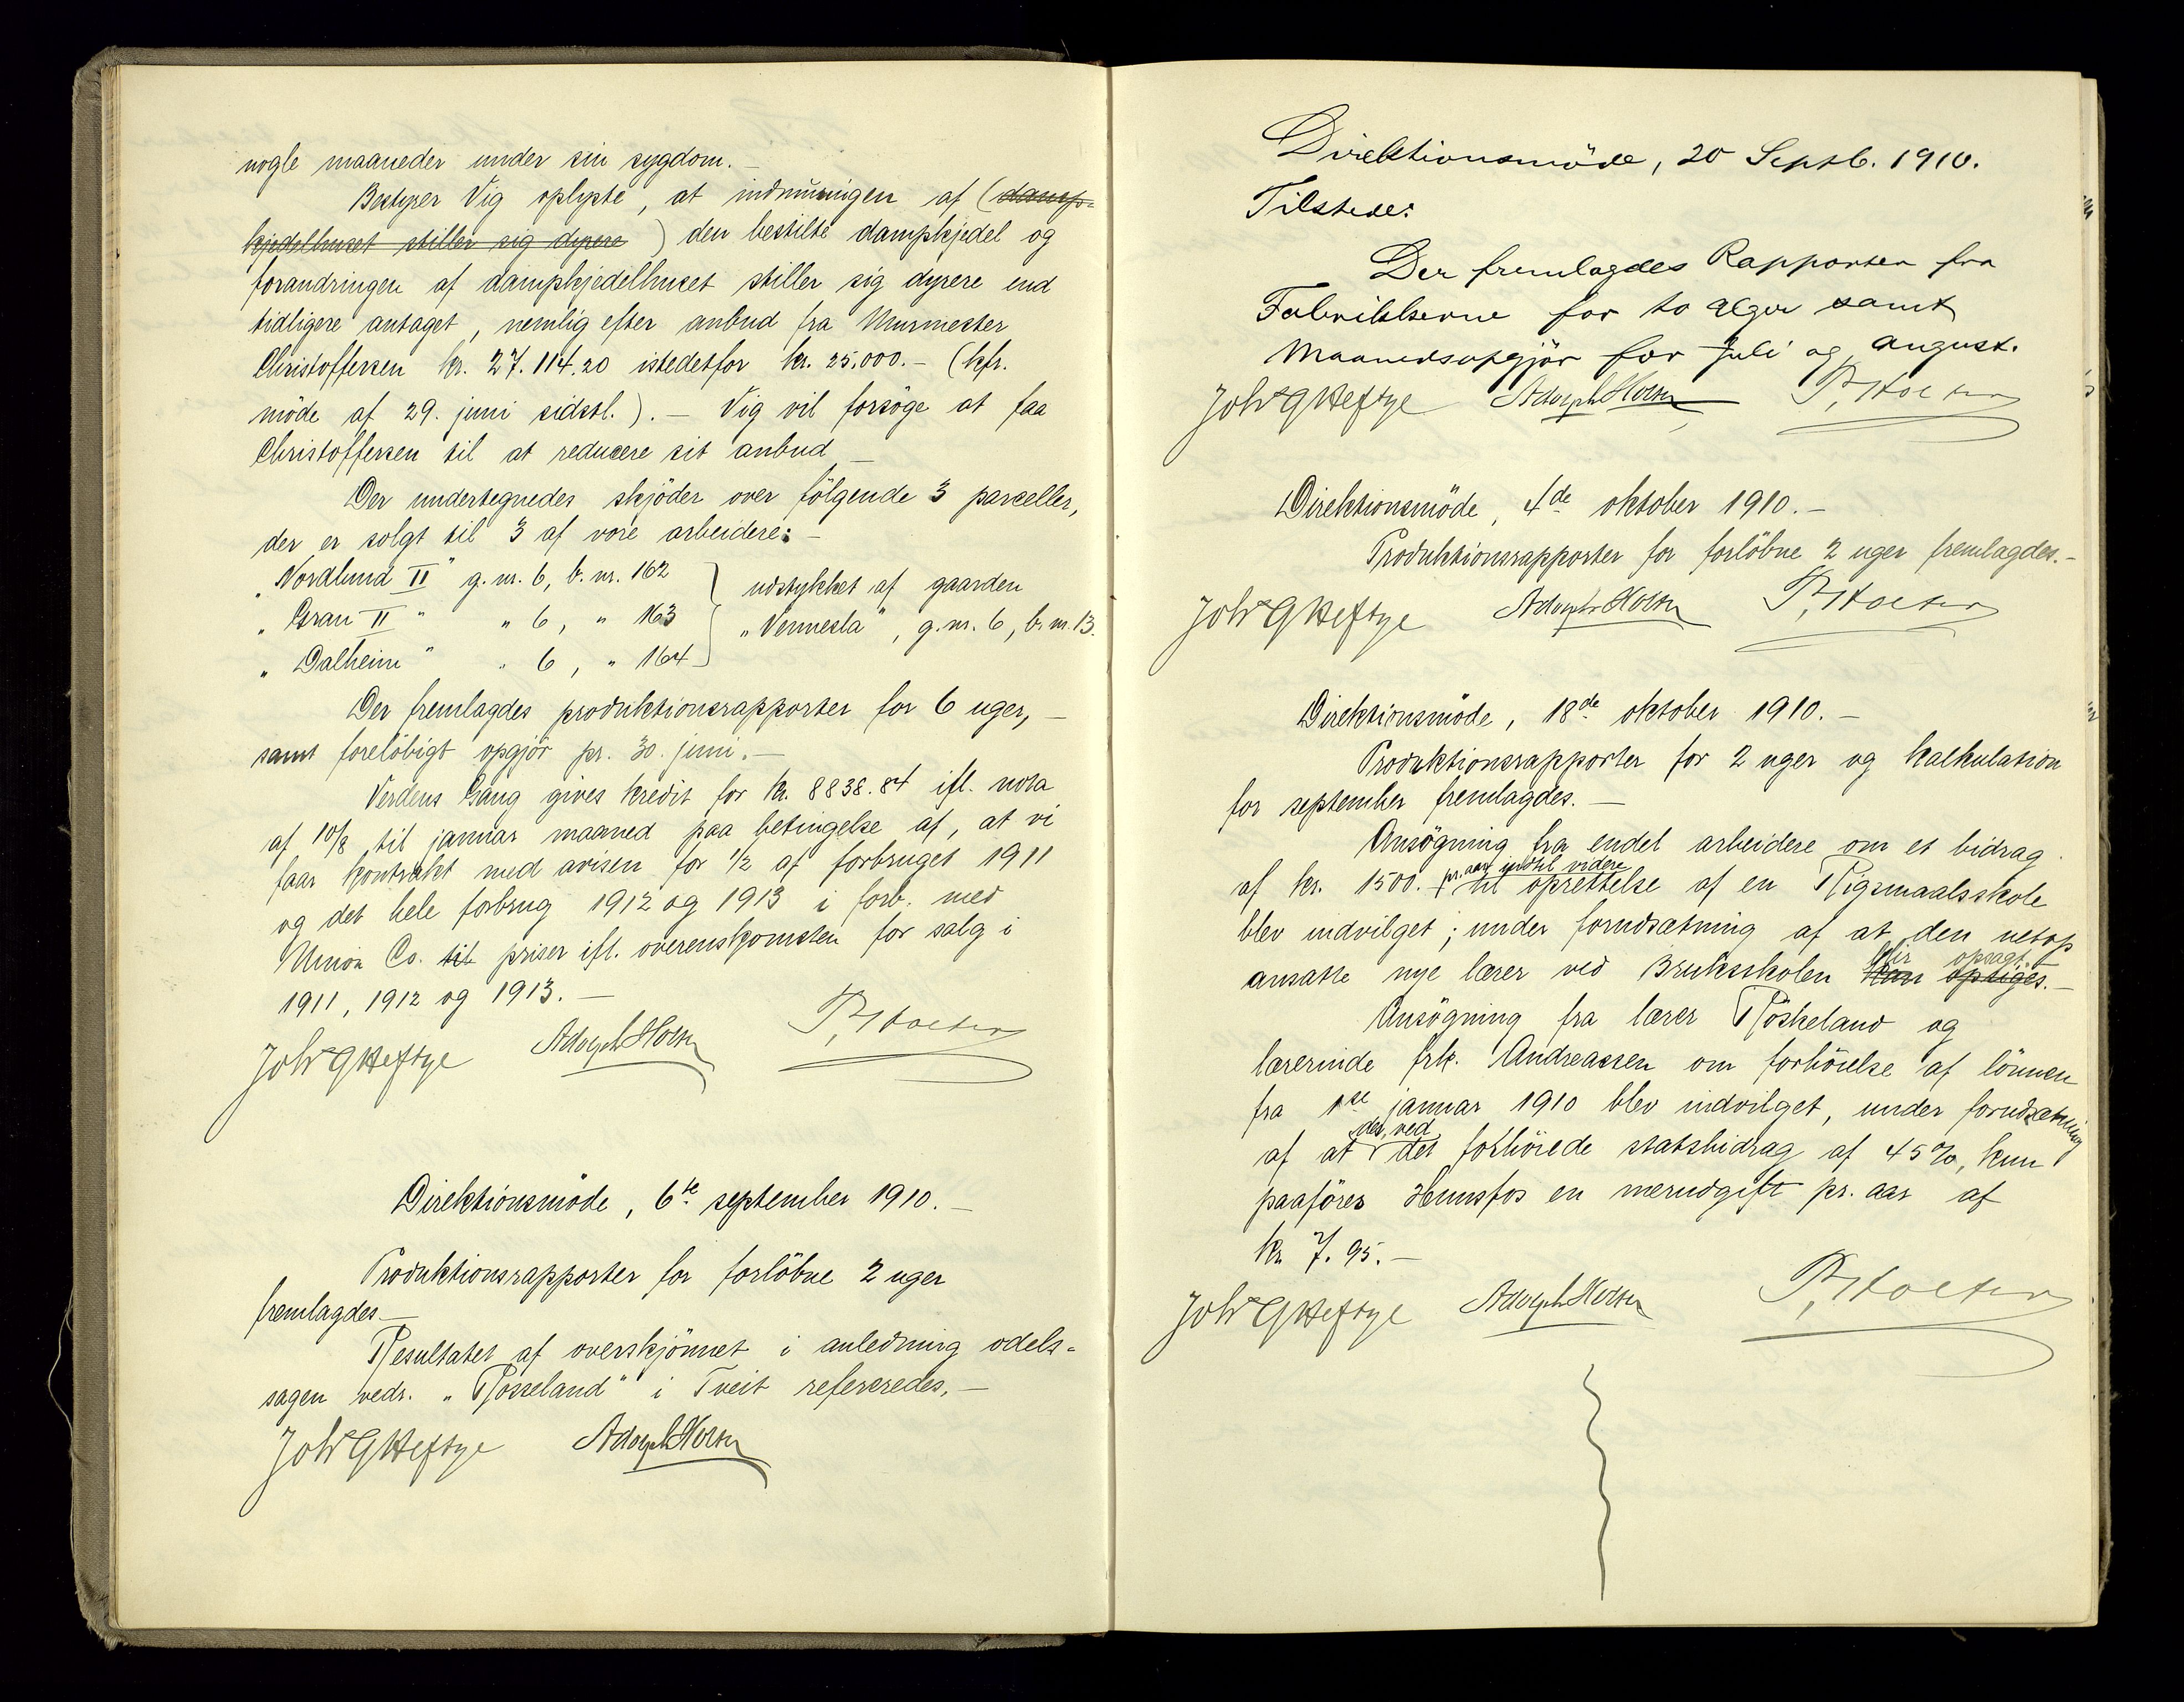 nogle maaneder under sin sygdom. –
Bestyrer Vig oplyste, at indmuringen af (damp-
kjedelhuset stiller sig dyrere) den bestilte dampkjedel og
forandringen af dampkjedelhuset stiller sig dyrere end
tidligere antaget, nemlig efter anbud fra Murmester
Christoffersen kr. 27.114.20 istedetfor kr. 25,000.– (kfr.
möde af 29. juni sidstl.). – Vig vil forsöge at faa
Christoffersen til at reducere sit anbud –
Der undertegnedes skjöder over fölgende 3 parceller,
der er solgt til 3 af vore arbeidere: –
„Nordlund II" g. nr. 6, b. nr. 162
„Gran II " „ 6, „ 163
„Dalheim " „ 6, „ 164
udstykket af gaarden
„Vennesla", g. nr. 6, b. nr. 13.
Der fremlagdes produktionsrapporter for 6 uger, –
samt forelöbigt opgjör pr. 30. juni. –
Verdens Gang gives kredit for kr. 8838.84 ifl. nota
af 10/8 til januar maaned paa betingelse af, at vi
faar kontrakt med avisen for 1/2 af forbruget 1911
og det hele forbrug 1912 og 1913 i forb. med
Union Co. til priser ifl. overenskomsten for salg i
1911, 1912 og 1913. –
Joh G Heftye Adolph Holm
Direktionsmöde, 6te september 1910. –
Produktionsrapporter for forlöbne 2 uger
fremlagdes –
Resultatet af overskjönnet i anledning odels-
sagen vedr. „Rosseland" i Tveit refereredes. –
Joh G Heftye Adolph Holm
Direktionsmöde, 20 Septb. 1910.
Tilstede:
Der fremlagdes Rapporter fra
Fabrikkerne for to Uger samt
Maanedsopgjör for Juli og August.
Joh G Heftye Adolph Holm
Direktionsmöde, 4de oktober 1910. –
Produktionsrapporter for forlöbne 2 uger fremlagdes. –
Joh G Heftye Adolph Holm
Direktionsmöde, 18de oktober 1910. –
Produktionsrapporter for 2 uger og kalkulation
for september fremlagdes. –
Ansögning fra endel arbeidere om et bidrag
pr. aar indtil videre
af kr. 1500. – til oprettelse af en Rigsmaalsskole
blev indvilget; under forudsætning af at den netop
blir opsagt
ansatte nye lærer ved Bruksskolen kan opsiges. –
Ansögning fra lærer Röskeland og
lærerinde frk. Andreassen om forhöielse af lönnen
fra 1ste januar 1910 blev indvilget, under forudsætning
der, ved
af at det forhöiede statsbidrag af 45%, kun
paaföres Hunsfos en merudgift pr. aar af
kr. 7.95. –
Joh G Heftye Adolph Holm